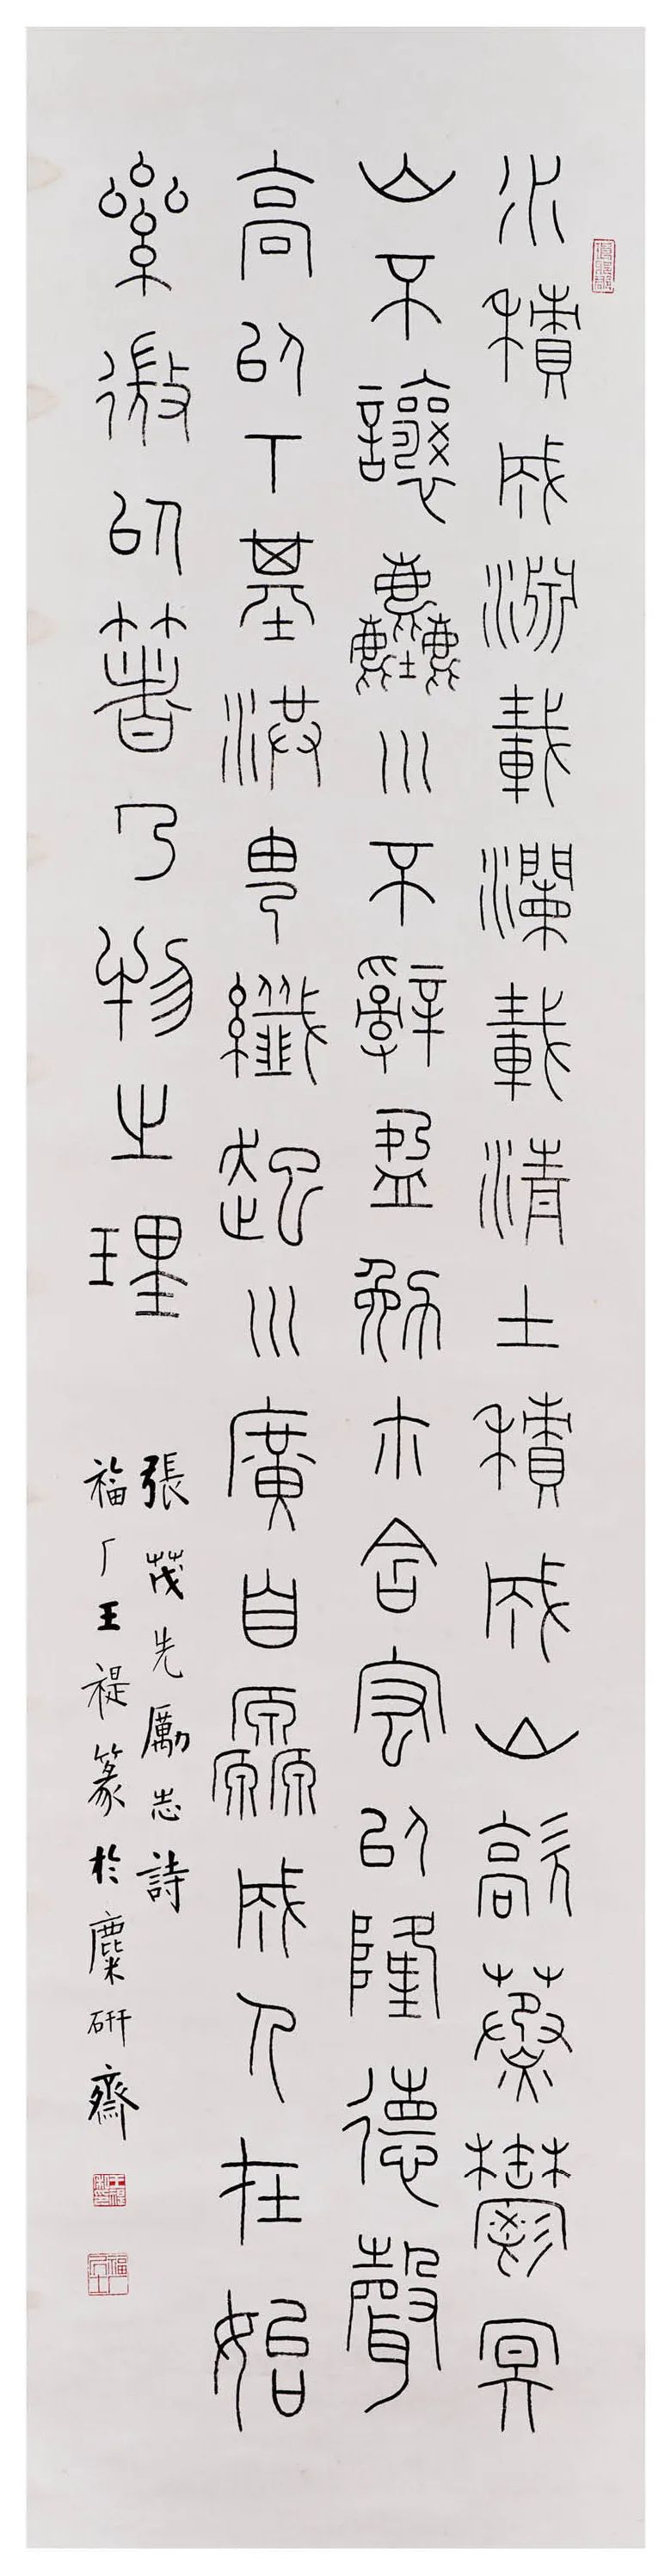 水積成淵載瀾載清土積成山歊蒸鬱冥
山不讓塵川不辭盈勉尒含宏以隆德聲
高以下基洪由纖起川廣自源成人在始
纍微以著乃物之理
張茂先勵志詩
福厂王禔篆於麋研齋